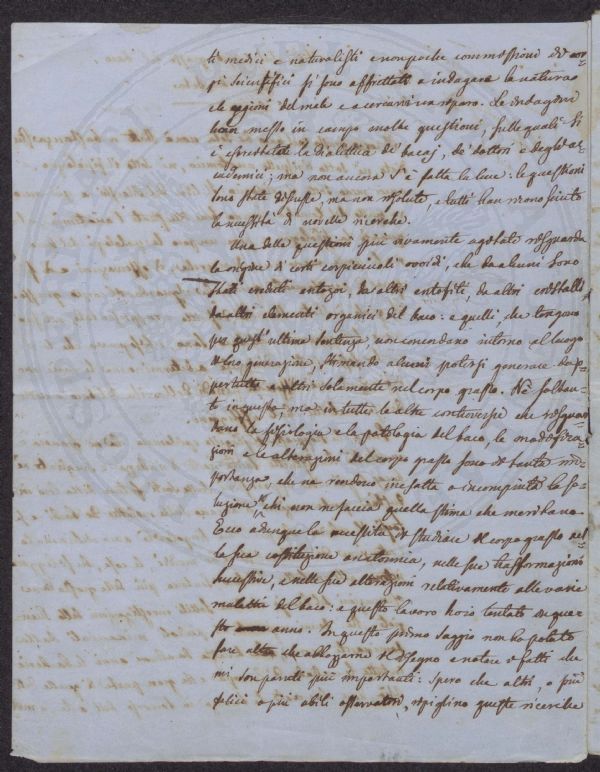 ti medici e naturalisti e non poche commessioni di cor-
pi scientifici si sono affrettati a indagare la natura
e le cagioni del male e a cercarvi un riparo. Le indagini
hanno messo in campo molte questioni, sulle quali si
è esercitata la dialettica de' bacaj, de' dottori e degli ac-
cademici; ma non ancora s'è fatta la luce: le questioni
sono state discusse, ma non risolute, e tutti han riconosciuto
la necessità di novelle ricerche.
Una delle questioni più vivamente agitate risguarda
la origine di certi corpicciuoli ovoidi, che da alcuni sono
stati creduti entozoi, da altri entofiti, da altri cristalli
da altri elementi organici del baco: e quelli, che tengono
per quest'ultima sentenza, non concordano intorno al luogo
di loro generazione, stimando alcuni potersi generare dap-
pertutto e altri solamente nel corpo grasso. Nè soltan-
to in questa ma in tutte le altre controversie che risguar-
dano la fisiologia e la patologia del baco, le modifica-
zioni e le alterazioni del corpo grasso sono di tanta im-
portanza, che ne rendono inesatta o incompiuta la so-
luzione a chi non ne faccia quella stima che meritano.
Ecco adunque la necessità di studiare il corpo grasso nel-
la sua costituzione anatomica, nelle sue trasformazioni
successive, e nelle sue alterazioni relativamente alle varie
malattie del baco: e questo lavoro ho io tentato in que-
sto anno. In questo primo saggio non ho potuto
fare altro che abbozzarne il disegno e notare i fatti che
mi son paruti più importanti: spero che altri, o più
felici o più abili osservatori, ripiglino queste ricerche